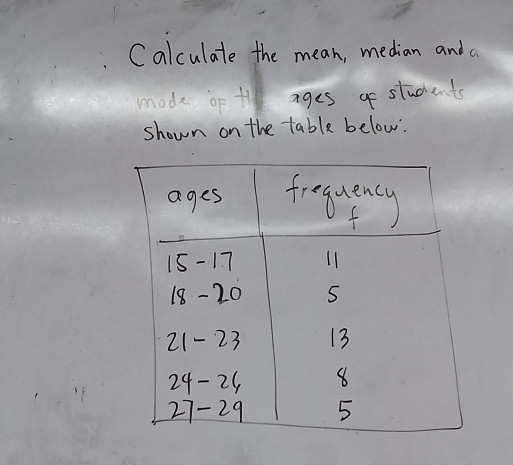 Calculate the mean, median and a
mode of the ages of students
shown on the table below:
ages frequency f
15-17 11
18-20 5
21-23 13
24-26 8
27-29 5